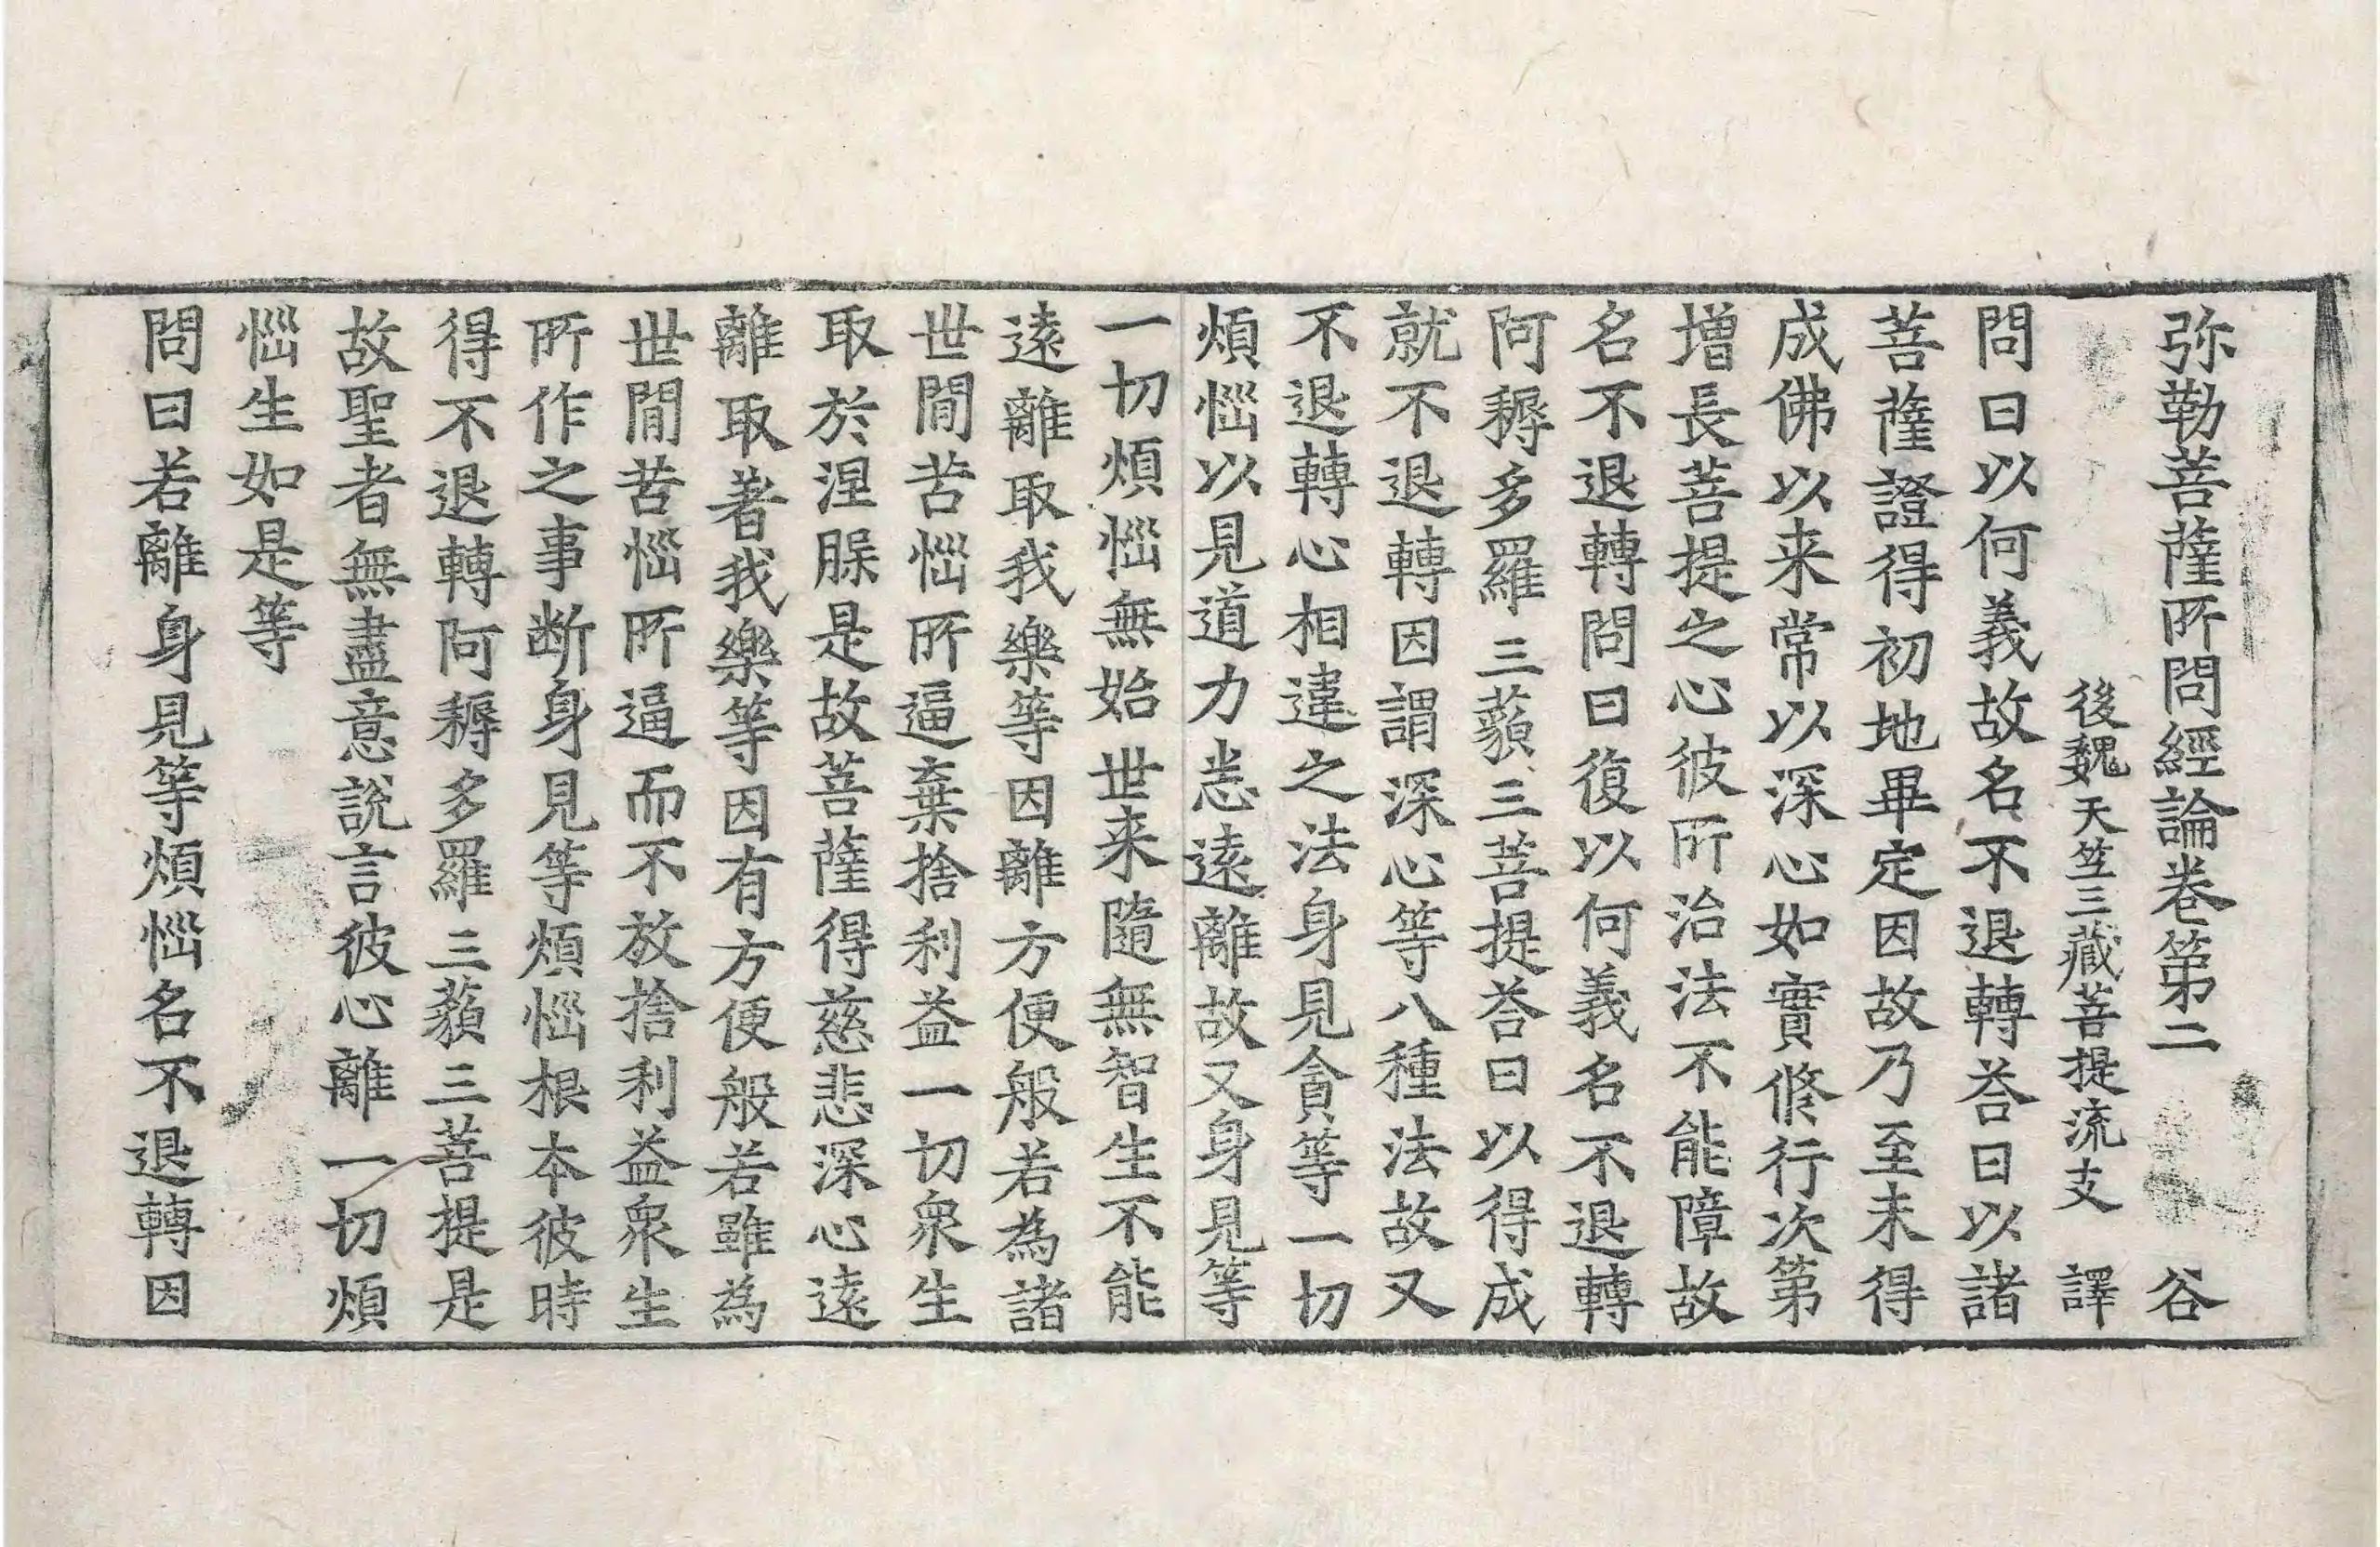 弥勒菩薩所問經論卷第二 谷
後魏天竺三藏菩提流支 譯
問曰以何義故名不退轉荅曰以諸
菩薩證得初地畢定因故乃至未得
成佛以来常以深心如實修行次第
增長菩提之心彼所治法不能障故
名不退轉問曰復以何義名不退轉
阿耨多羅三藐三菩提荅曰以得成
就不退轉因謂深心等八種法故又
不退轉心相違之法身見貪等一切
煩惱以見道力悉遠離故又身見等
一切煩惱無始世来隨無智生不能
遠離取我樂等因離方便般若為諸
世間苦惱所逼棄捨利益一切衆生
取於涅槃是故菩薩得慈悲深心遠
離取著我樂等因有方便般若雖為
世間苦惱所逼而不放捨利益衆生
所作之事断身見等煩惱根本彼時
得不退轉阿耨多羅三藐三菩提是
故聖者無盡意說言彼心離一切煩
惱生如是等
問曰若離身見等煩惱名不退轉因